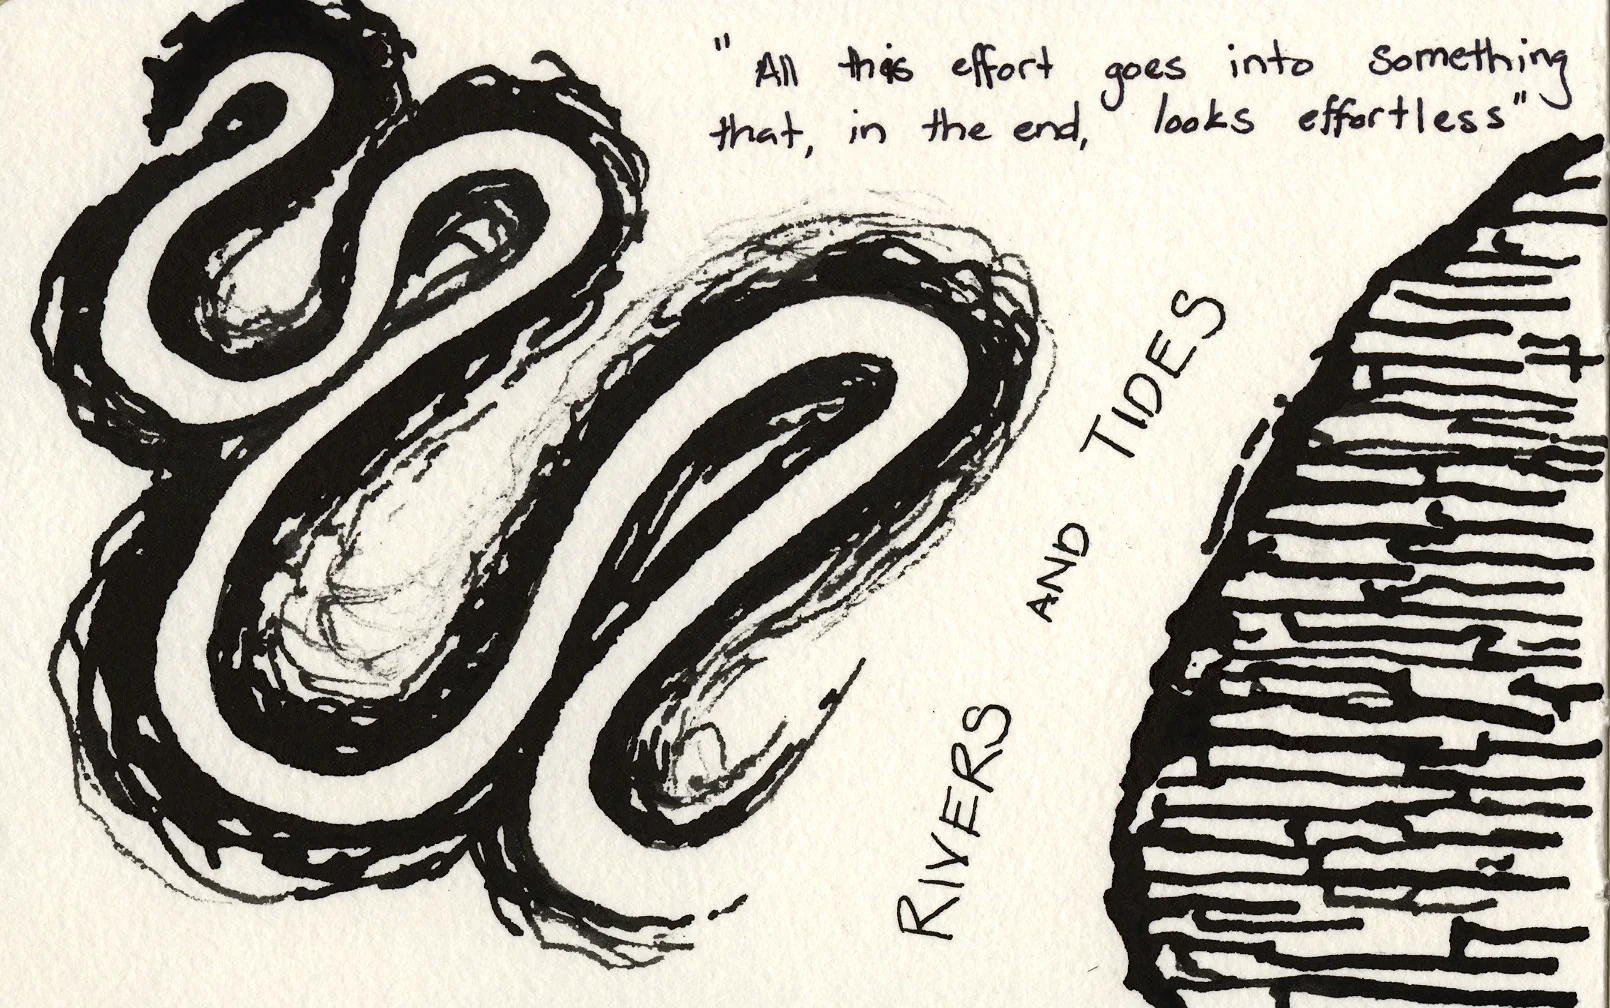 "All this effort goes into something
that, in the end, looks effortless"
RIVERS AND TIDES